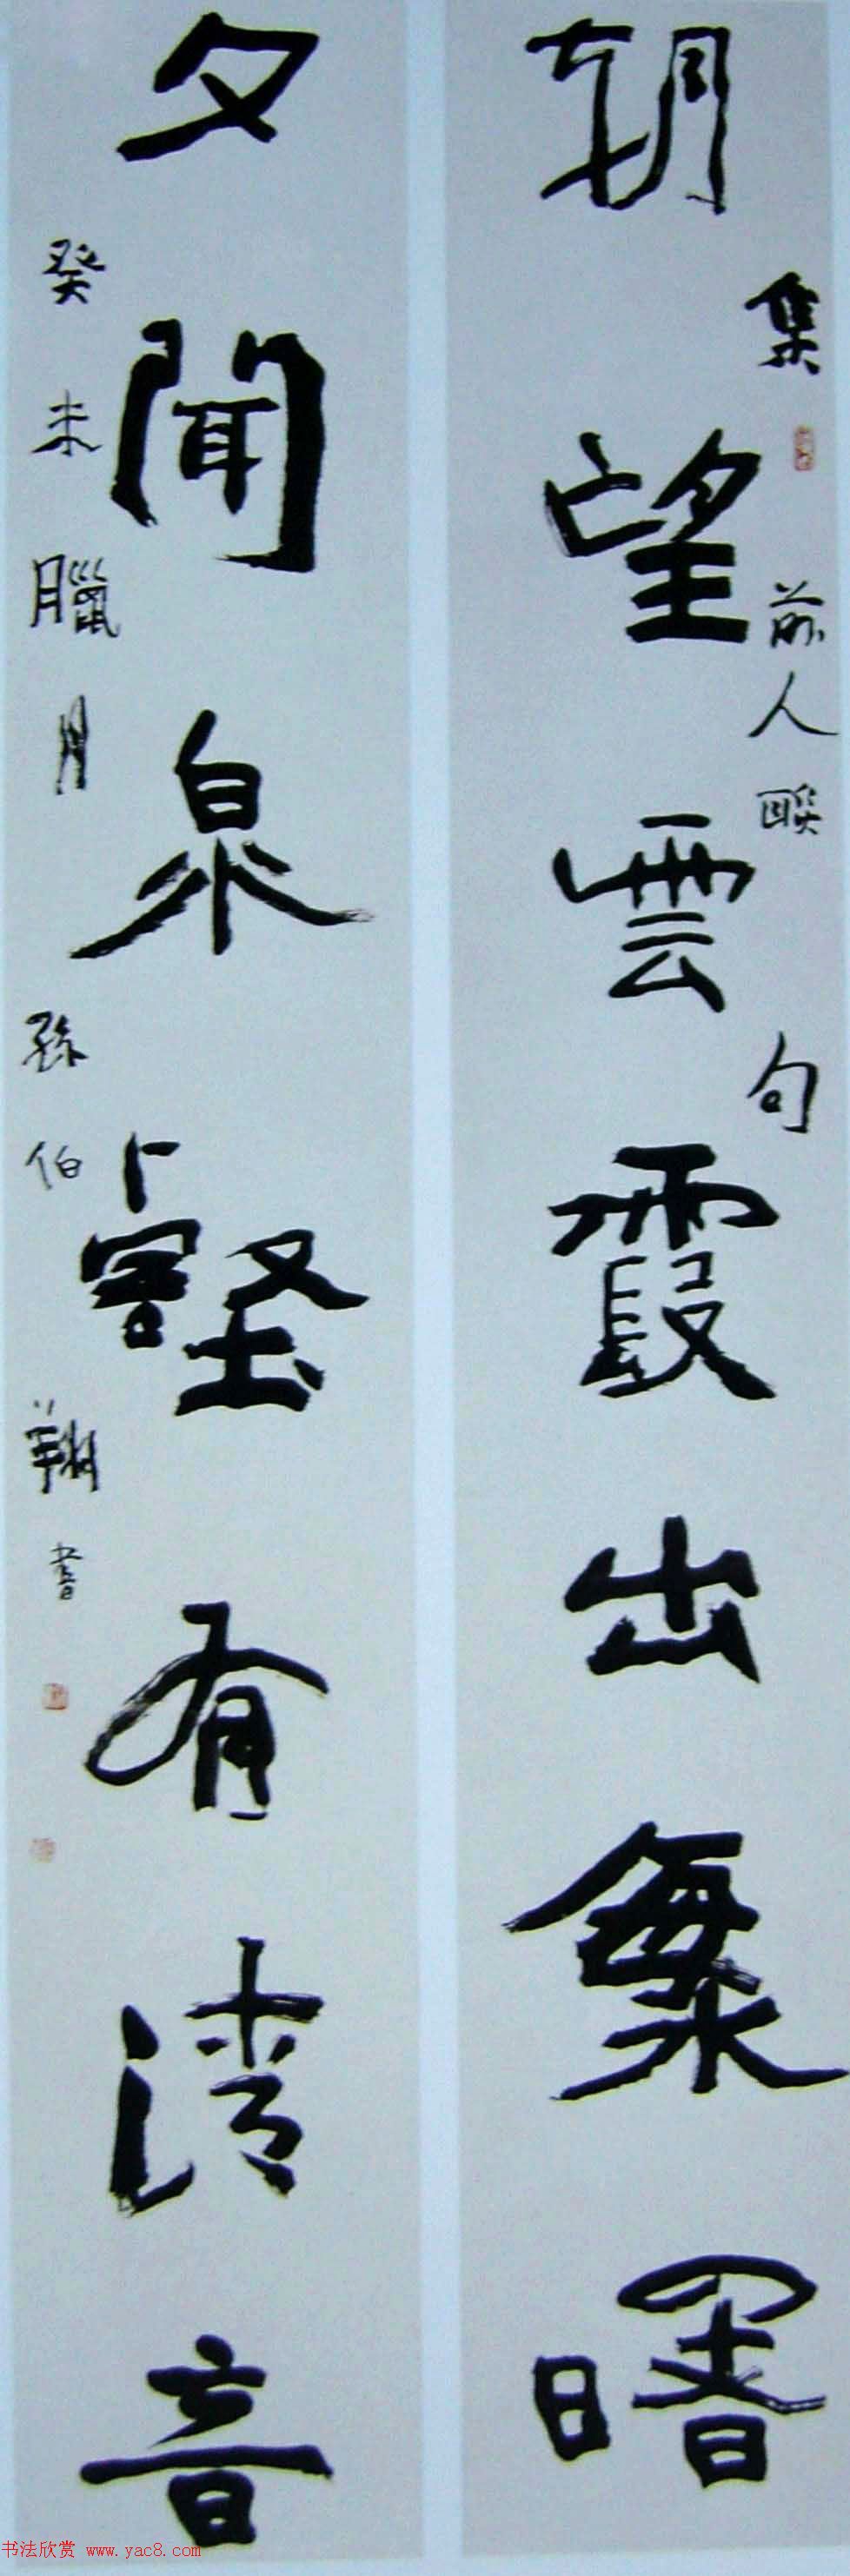 朝望雲霞出曙
集前人联句
夕聞泉壑有清音
癸未臘月孫伯翔書
书法欣赏 www.yac8.com